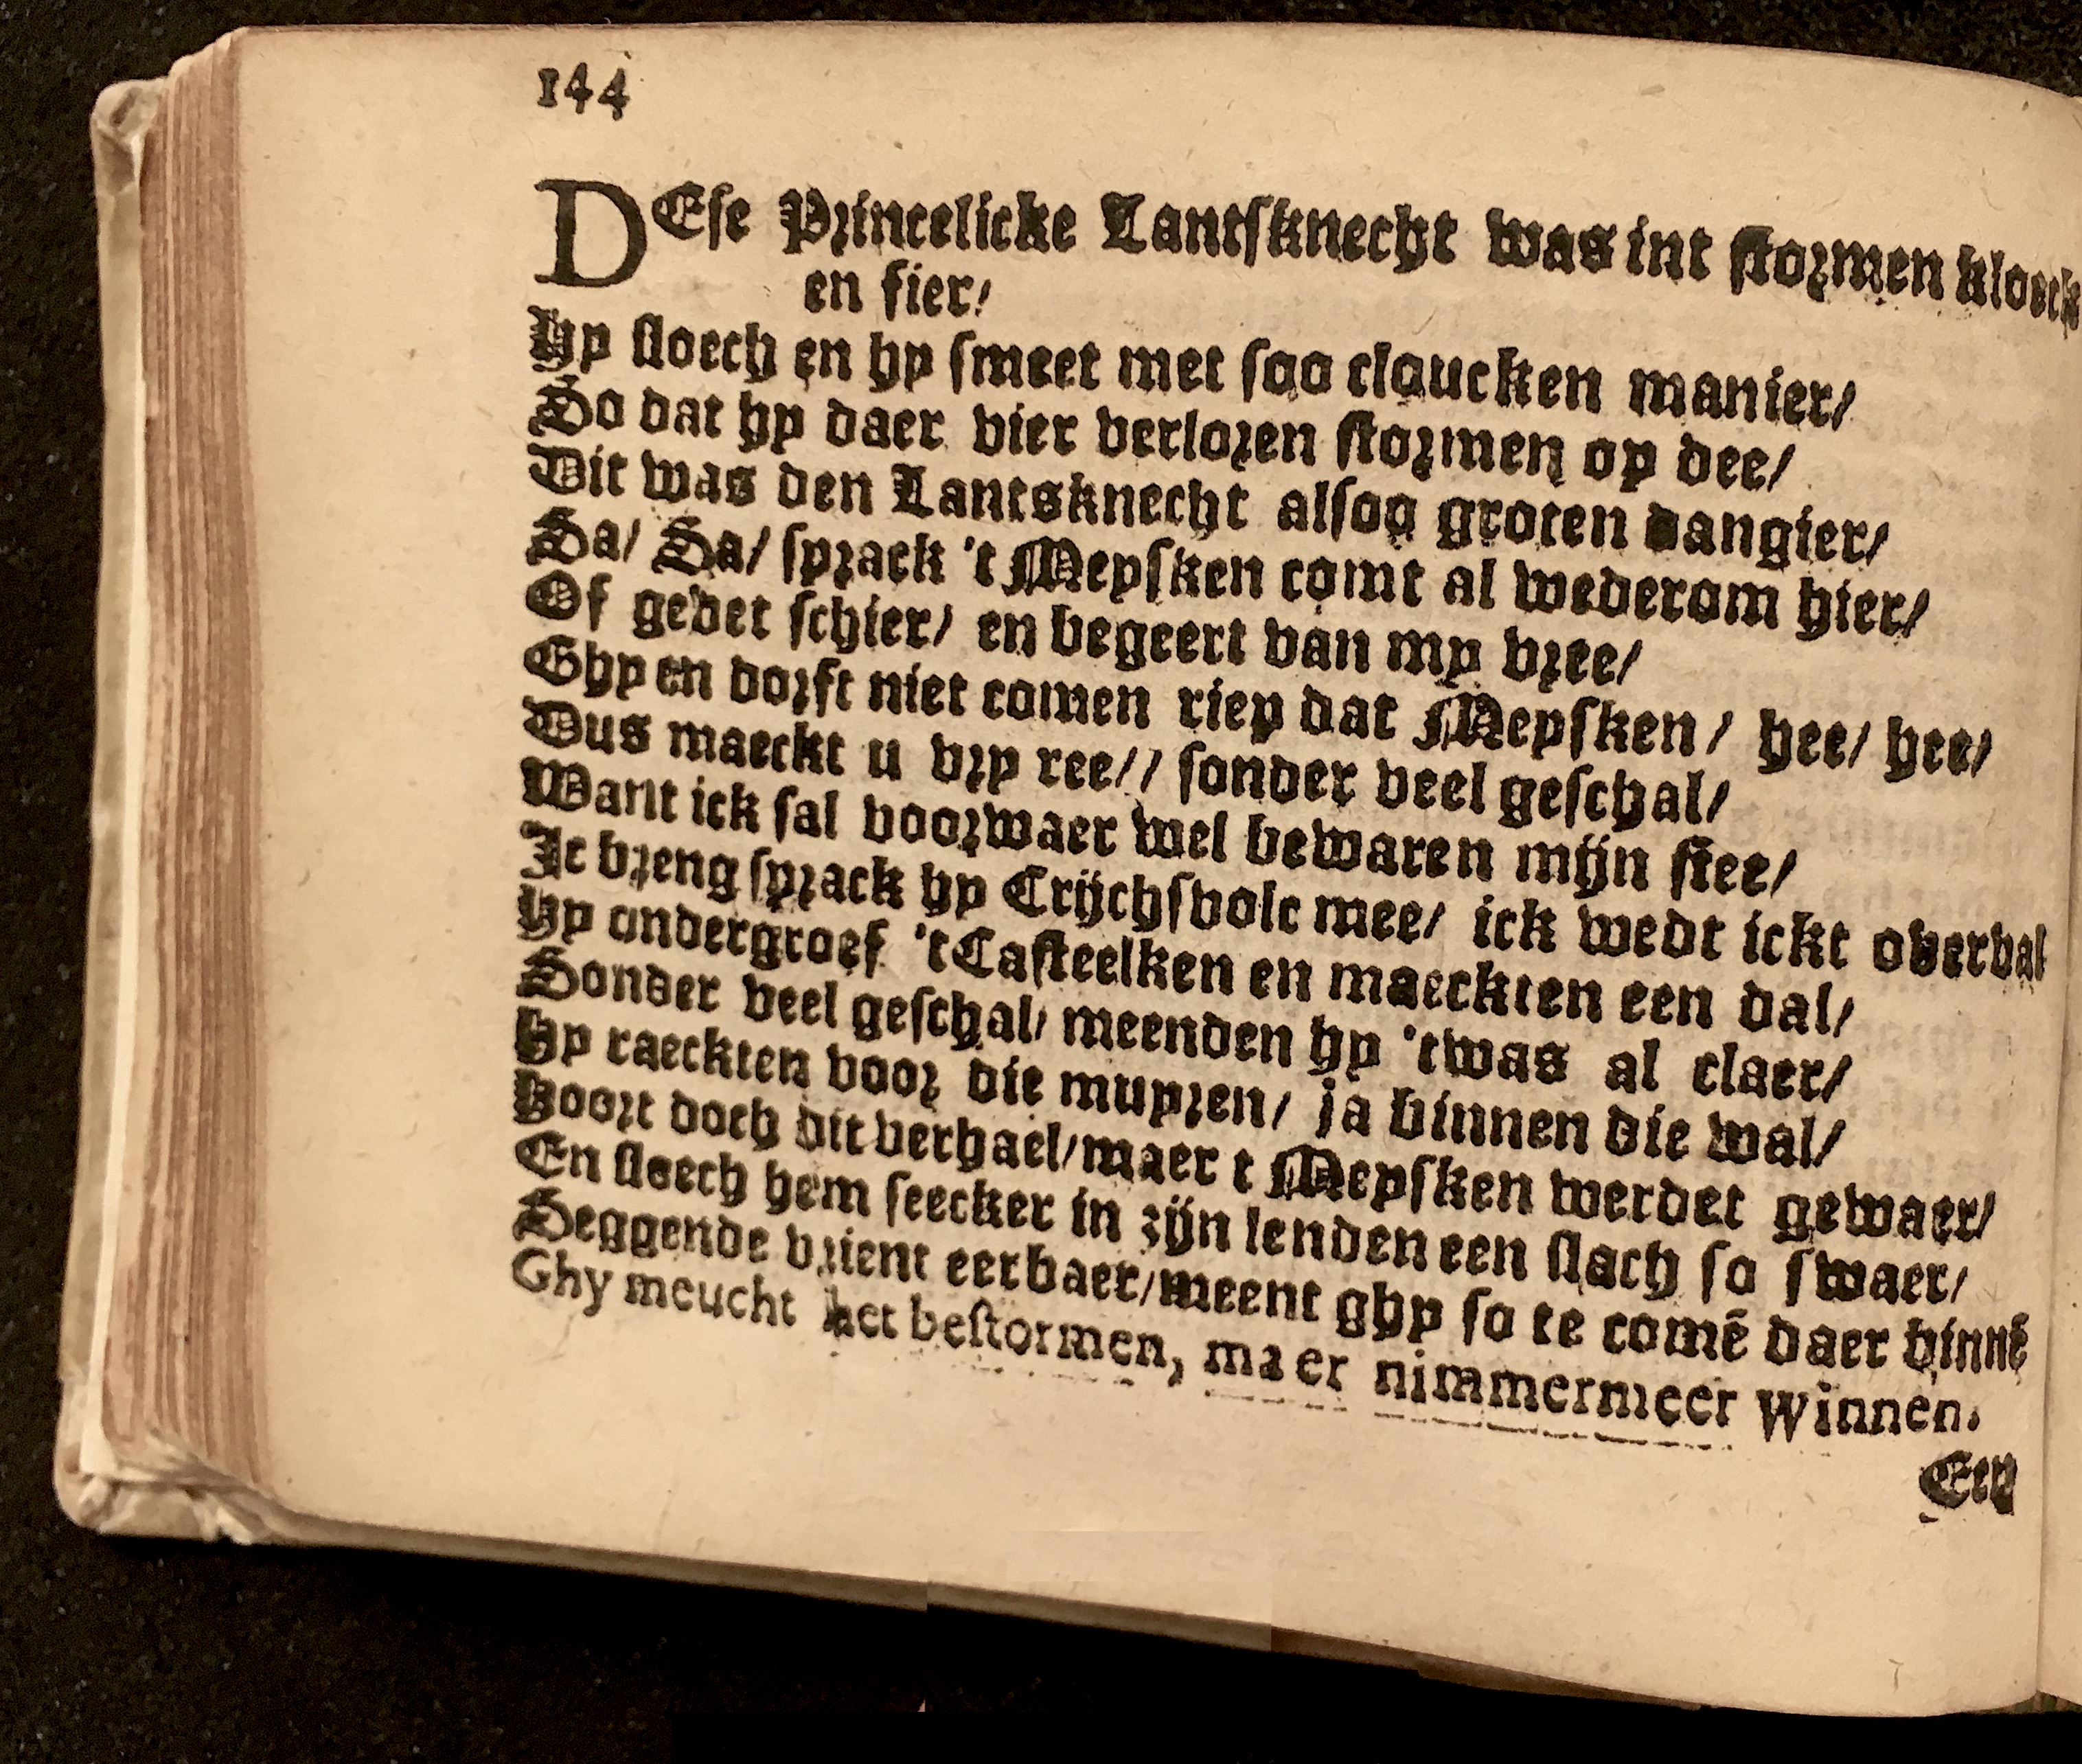 144
DEse Princelicke Lantsknecht was int stormen kloeck
en fier/
Hy sloech en hy smeet met soo cloucken manier/
So dat hy daer vier verloren stormen op dee/
Dit was den Lantsknecht alsoo groten dangier/
Sa/ Sa/ sprack 't Meysken comt al wederom hier/
Of gevet schier/ en begeert van my vree/
Ghy en dorft niet comen riep dat Meysken/ hee/ hee/
Dus maeckt u vry ree// sonder veel geschal/
Want ick sal voorwaer wel bewaren mijn stee/
Ic breng sprack hy Crijchsvolc mee/ ick wedt ickt overval
Hy ondergroef 't Casteelken en maeckten een dal/
Sonder veel geschal/ meenden hy 'twas al claer/
Hy raeckten voor die muyren/ ja binnen die wal/
Hoort doch dit verhael/maer t Meysken werdet gewaer/
En sloech hem seecker in zijn lenden een slach so swaer/
Seggende vrient eerbaer/meent ghy so te comē daer binnē
Ghy meucht het bestormen, maer nimmermeer winnen.
Een